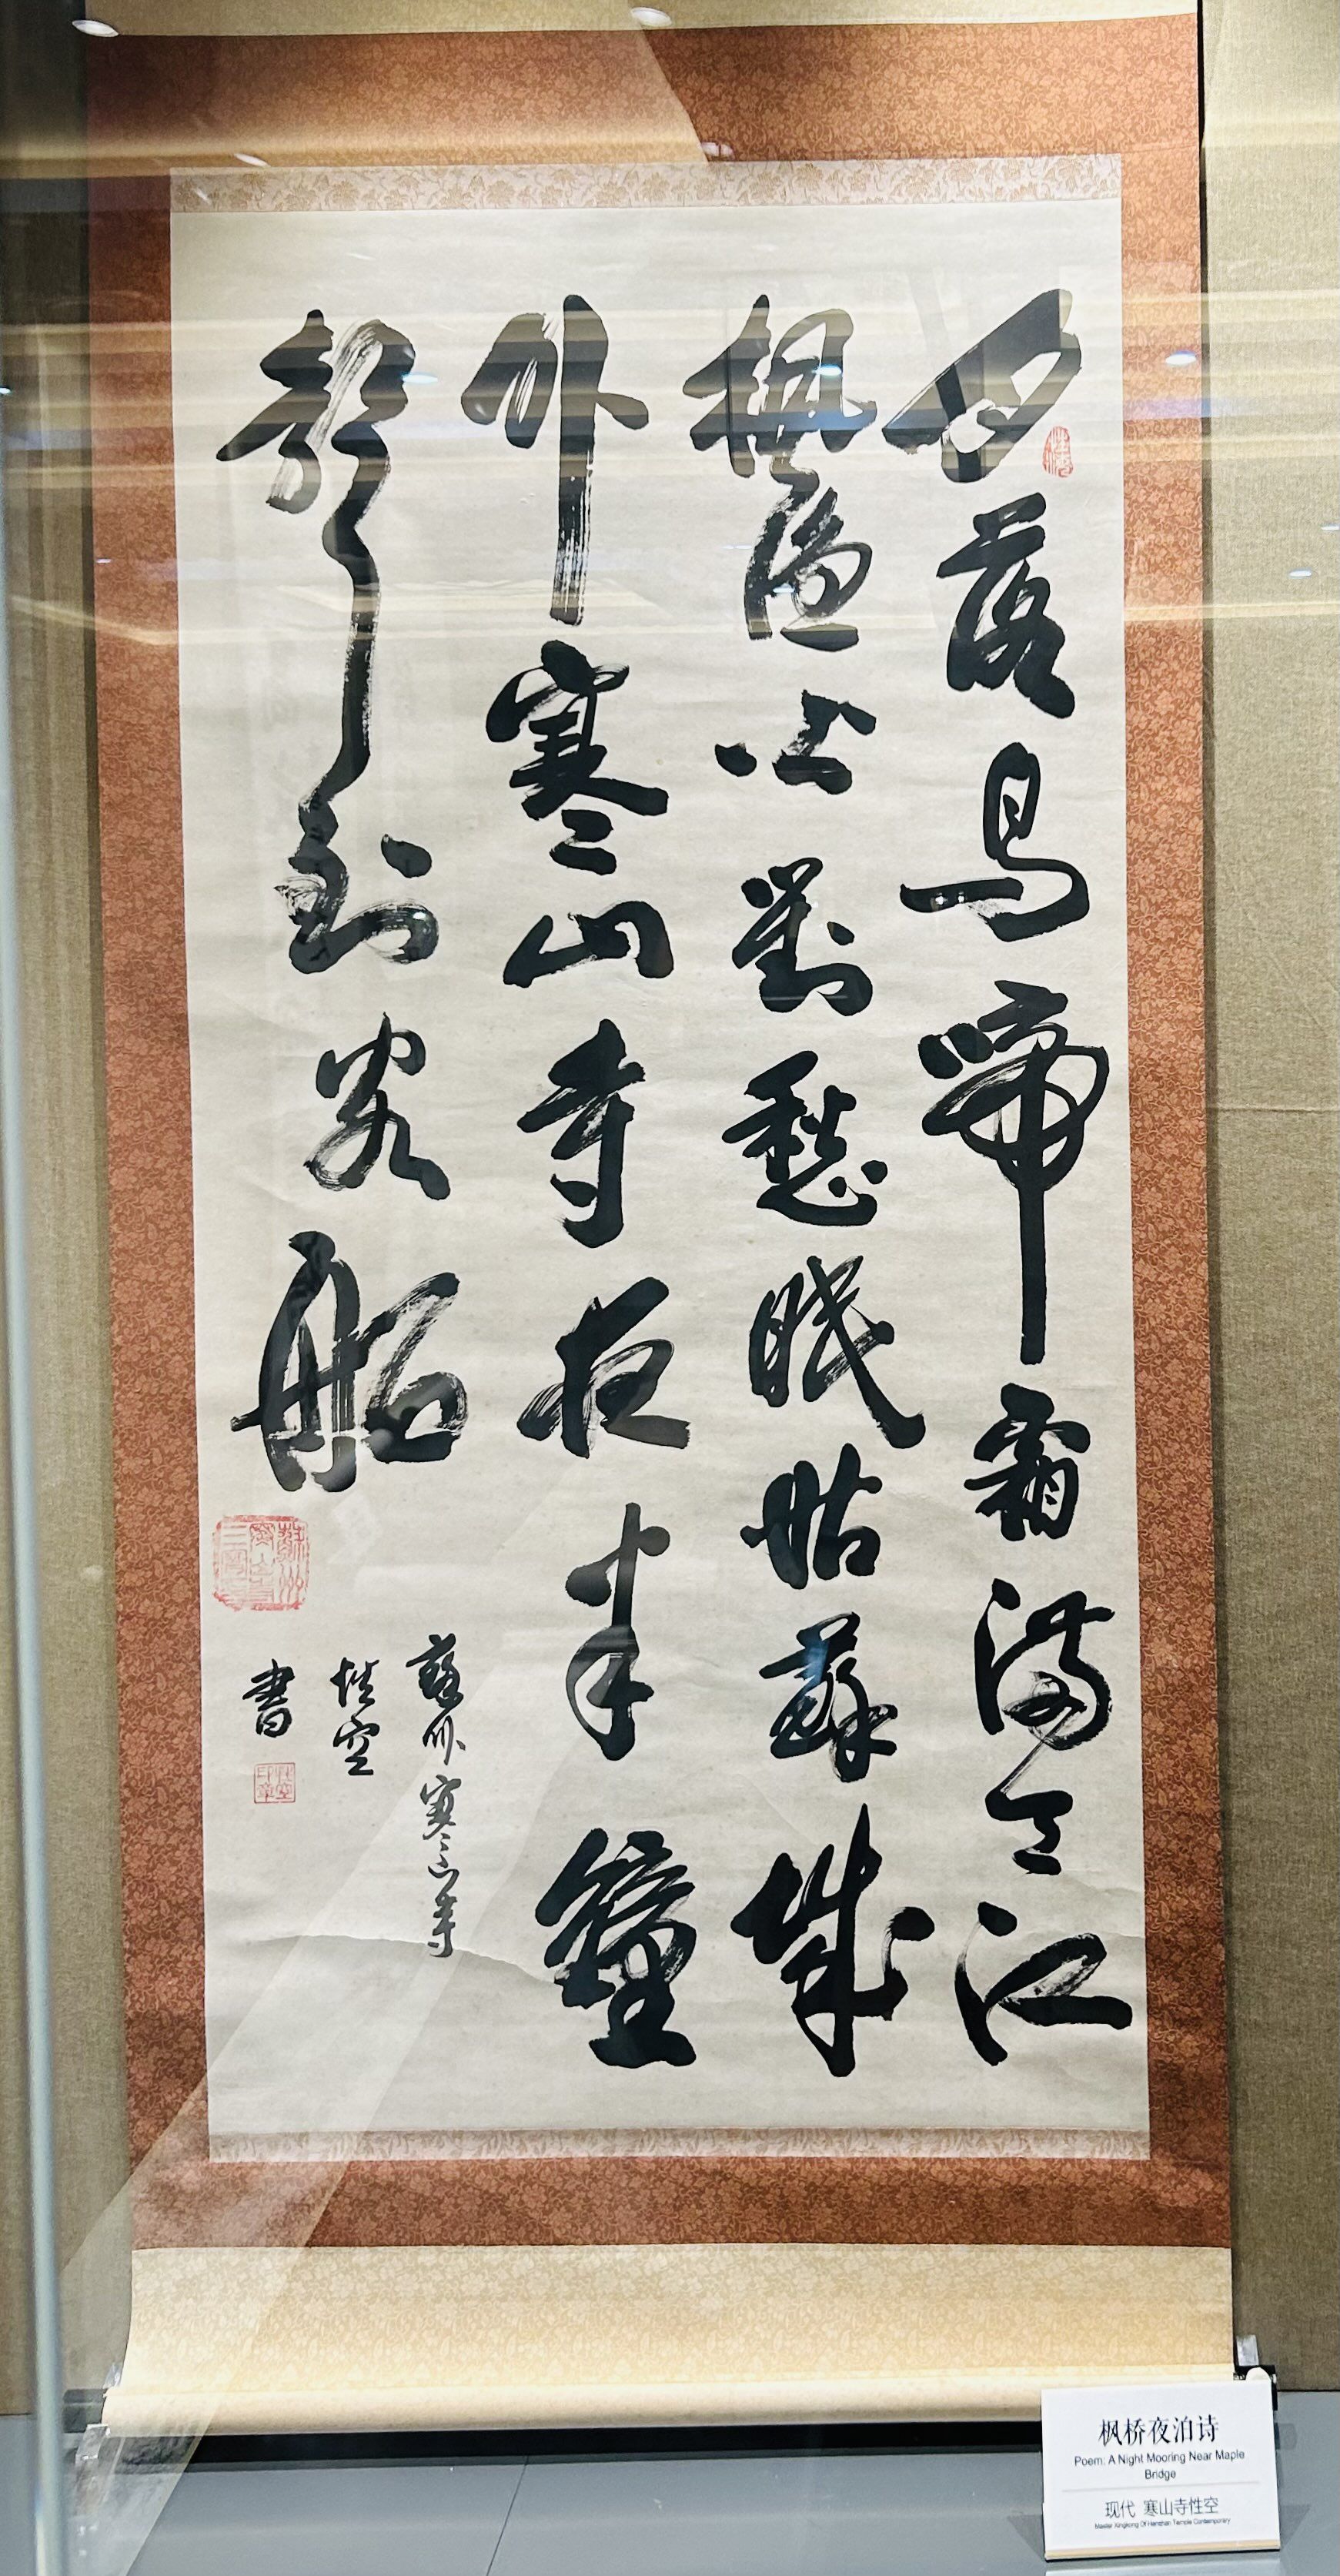 月落烏啼霜滿天江
楓漁火對愁眠姑蘇城
外寒山寺夜半鐘
聲到客船
蘇州寒山寺
性空
書
性空印章
枫桥夜泊诗
Poem: A Night Mooring Near Maple
Bridge
现代 寒山寺性空
Master Xingkong Of Hanshan Temple Contemporary